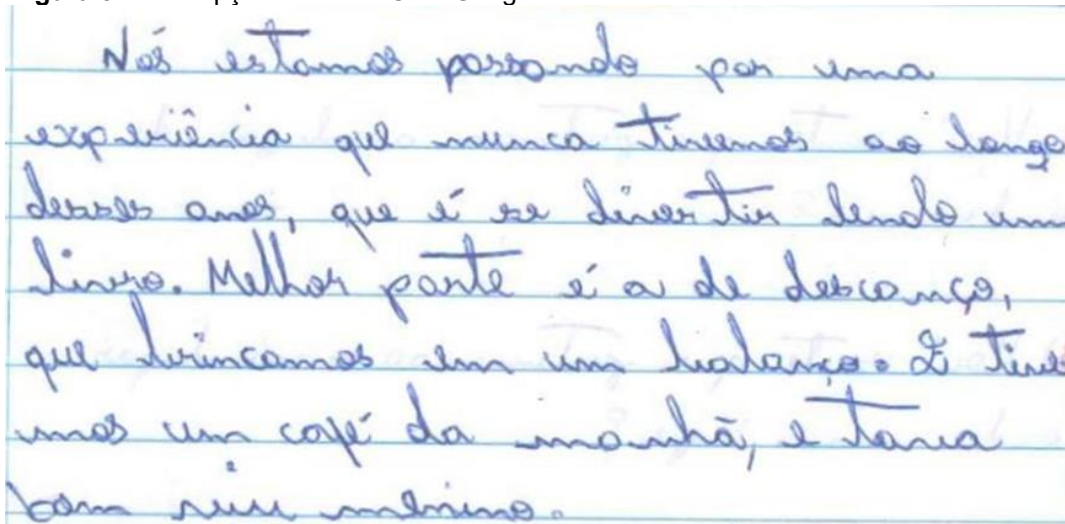 Nós estamos passando por uma
experiência que nunca tivemos ao longo
desses anos, que é se divertir lendo um
livro. Melhor parte é a de descanço,
que brincamos em um balanço. E tive
mos um café da manhã, e tava
bom viu menino.